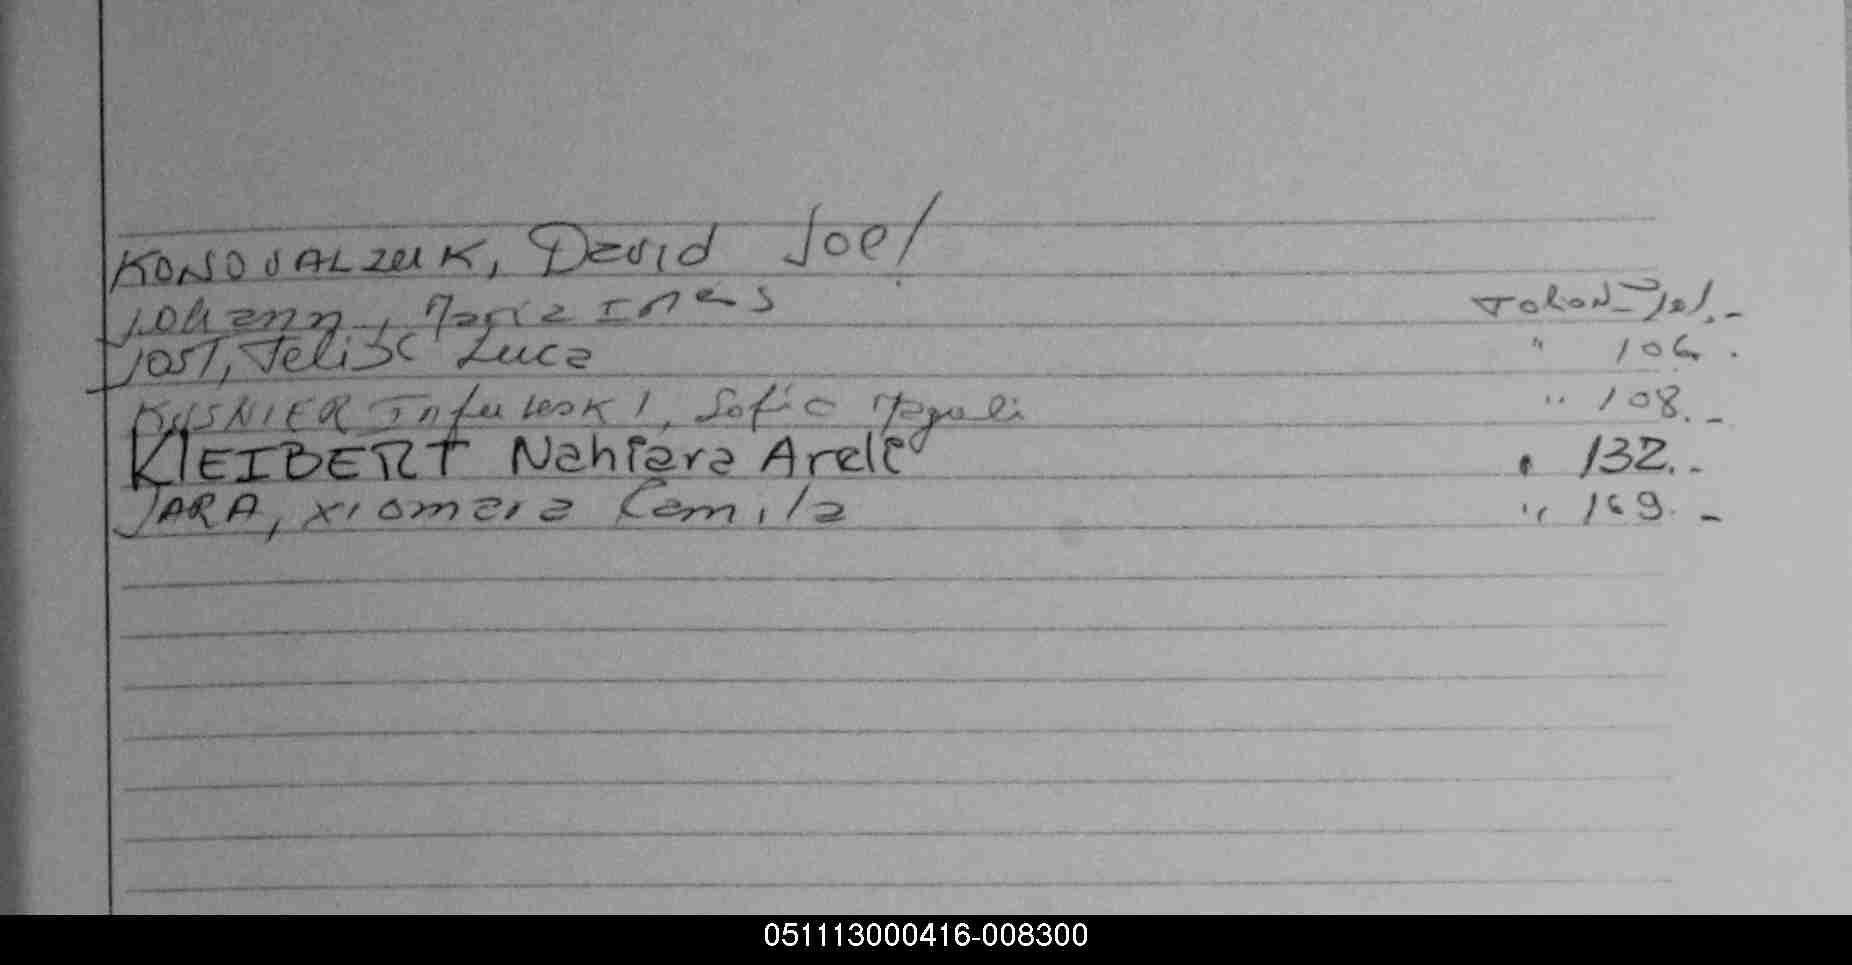 KONOVALZUK, David Joel
JOhann, Maria Ines
JOST, Felix Luca " 106.
KUSNIER Infuleski, Sofia Magali " 108.-
KLEIBERT Nahiara Areli " 132.-
JARA, xiomara Camila " 169.-
051113000416-008300